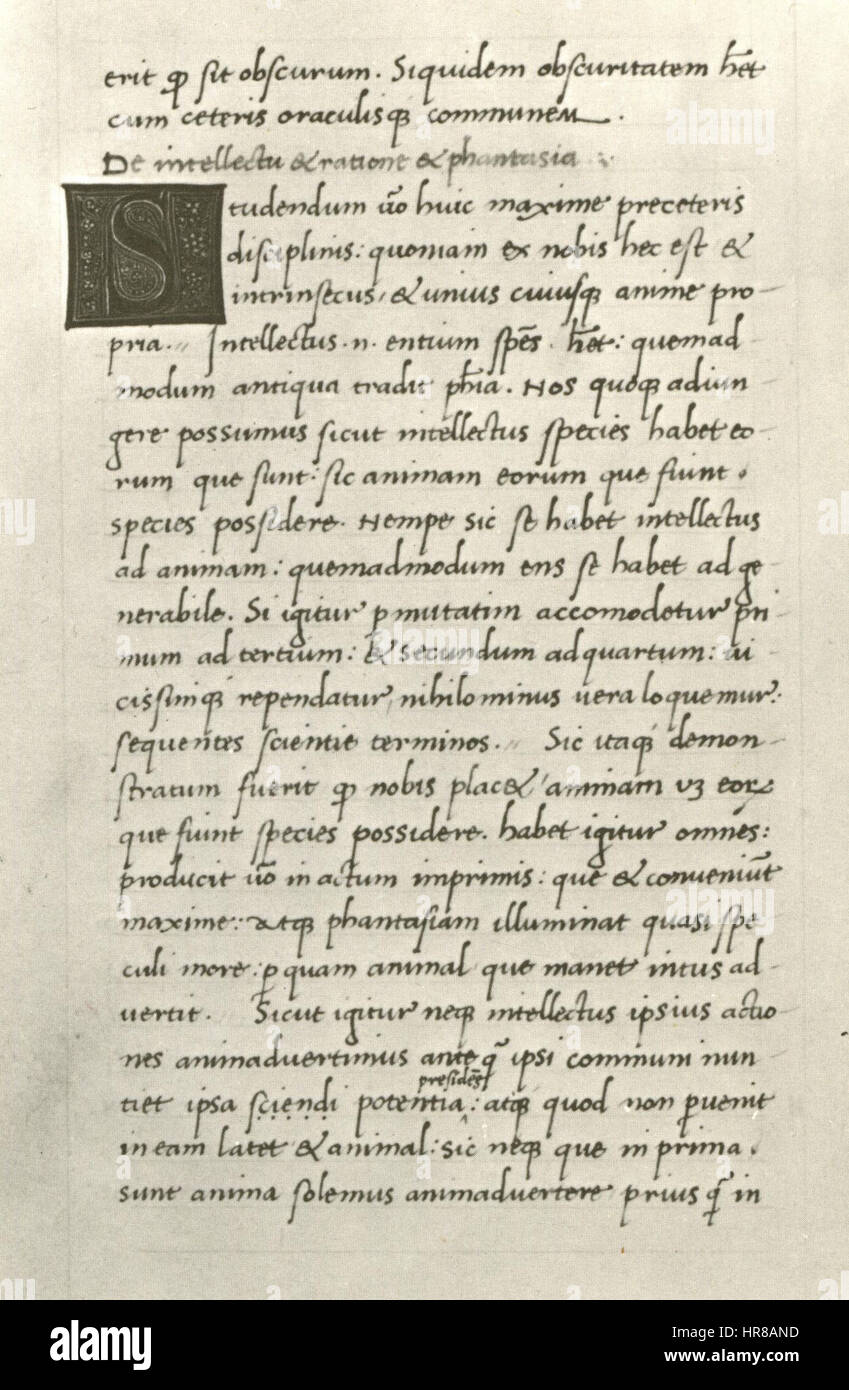 erit qꝫ sit obscurum. Siquidem obscuritatem hēt
cum ceteris oraculisqꝫ communem.
De intellectu & ratione & phantasia
Studendum ūo huic maxime preceteris
disciplinis: quoniam ex nobis hec est &
intrinsecus, & unius cuiusqꝫ anime pro-
pria. Intellectus .n. entium spēs. hēt: quemad
modum antiqua tradit phīa. Nos quoqꝫ adiun-
gere possumus sicut intellectus species habet eo-
rum que sunt: sic animam eorum que fiunt.
species possidere. Nempe sic se habet intellectus
ad animam: quemadmodum ens se habet ad ge-
nerabile. Si igitur ꝑmutatim accomodetur pri-
mum ad tertium: & secundum ad quartum: ui-
cissimqꝫ rependatur, nihilominus uera loquemur:
sequentes scientie terminos. Sic itaqꝫ demon-
stratum fuerit ꝙ nobis placet animam uꝫ eoꝝ
que fiunt species possidere. habet igitur omnes:
producit ūo in actum imprimis: que & conveniūt
maxime: atqꝫ phantasiam illuminat quasi spe
culi more: ꝑ quam animal que manet intus ad-
vertit. Sicut igitur neqꝫ intellectus ipsius actio-
nes animadvertimus ante q̄ ipsi communi nun-
presidēs
tiet ipsa sciendi potentia: atqꝫ quod non ꝑuenit
in eam latet & animal: sic neqꝫ que in prima
sunt anima solemus animadvertere prius q̄ in
alamy
HR8AND
www.alamy.com